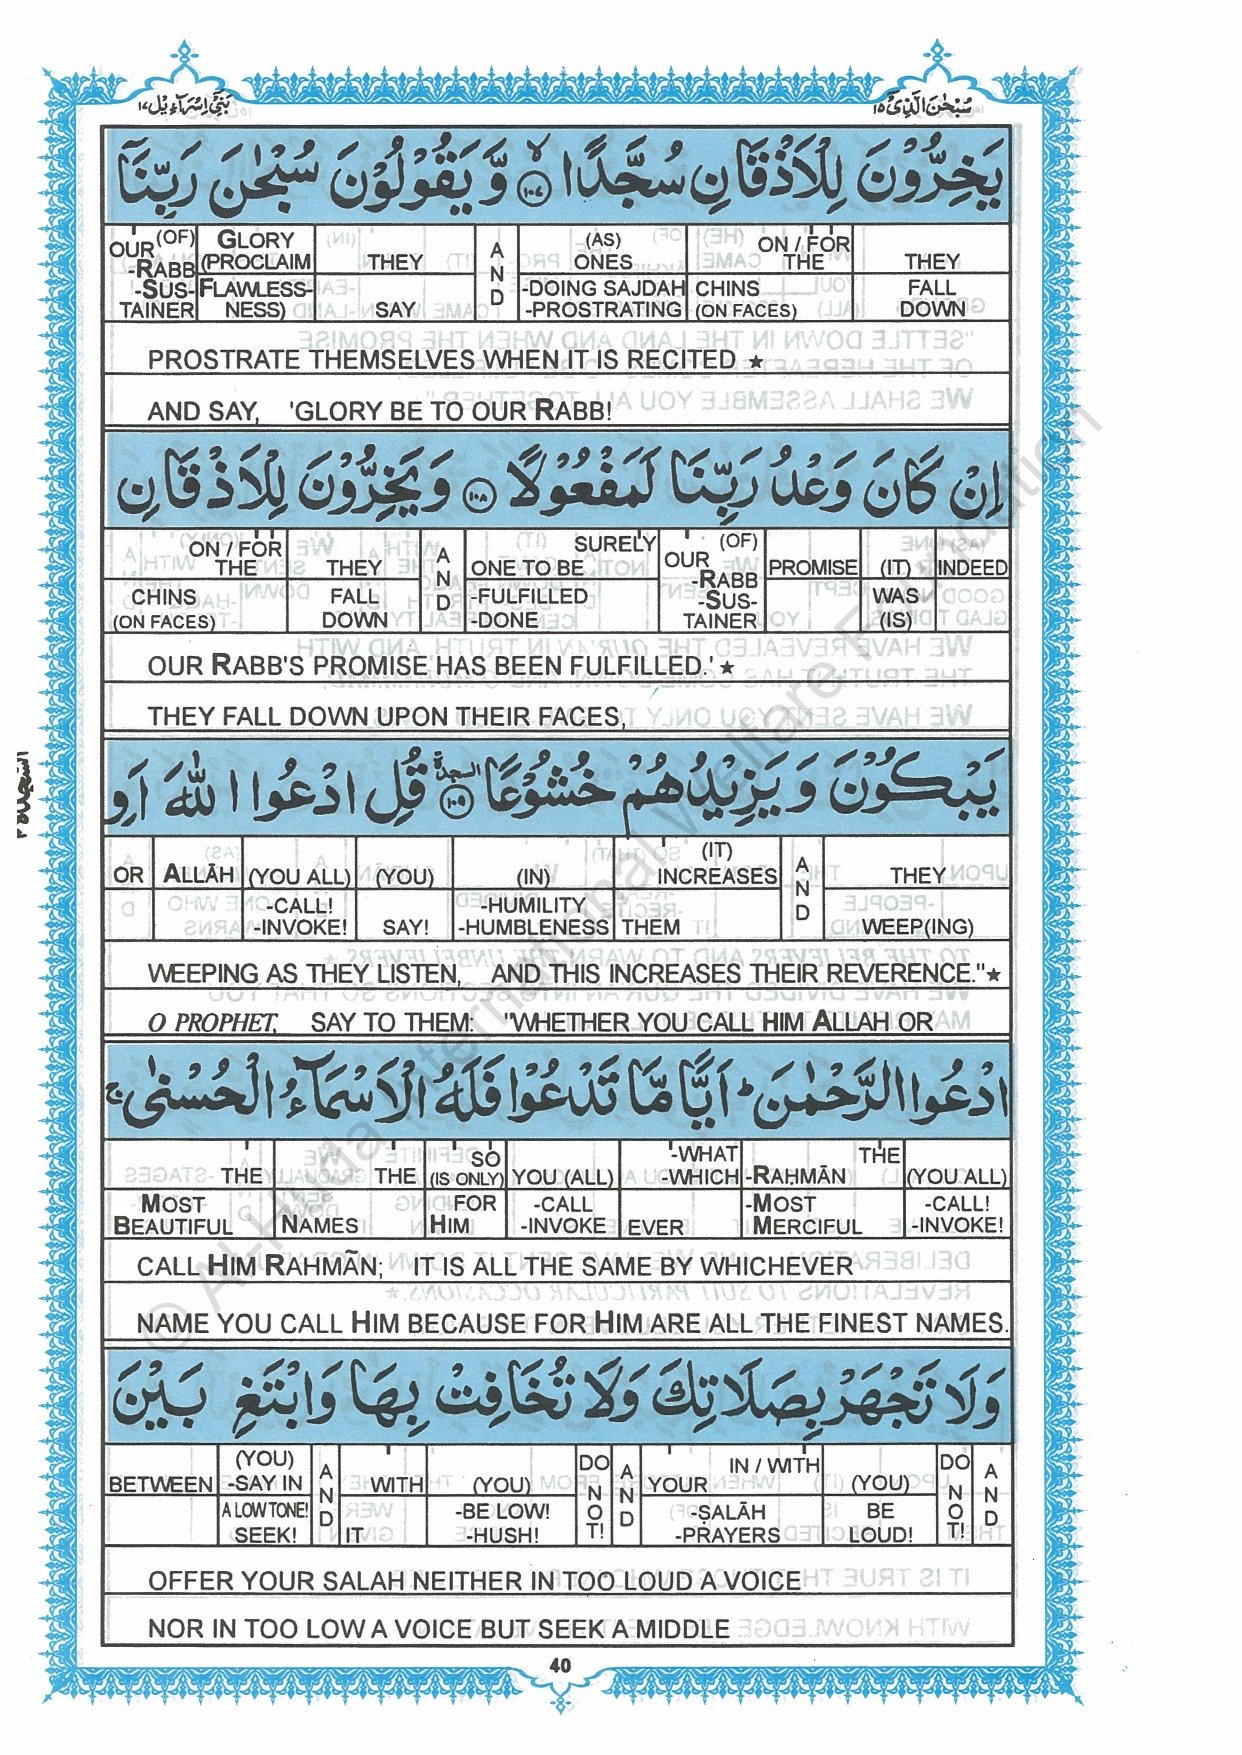 سُبْحٰنَ الَّذِیْۤ ۱۵
بَنِیْۤ اِسْرَآءِیْل ۱۷
یَخِرُّوْنَ لِلْاَذْقَانِ سُجَّدًا ۙ۝۱۰۷ وَّ یَقُوْلُوْنَ سُبْحٰنَ رَبِّنَاۤ
OUR (OF) GLORY ON / FOR
-RABB (PROCLAIM THEY AND (AS) ONES THE THEY
-SUS- FLAWLESS- -DOING SAJDAH CHINS FALL
TAINER NESS) SAY -PROSTRATING (ON FACES) DOWN
PROSTRATE THEMSELVES WHEN IT IS RECITED ★
AND SAY, 'GLORY BE TO OUR RABB!
اِنْ كَانَ وَعْدُ رَبِّنَا لَمَفْعُوْلًا ۝۱۰۸ وَ یَخِرُّوْنَ لِلْاَذْقَانِ
ON / FOR SURELY OUR (OF)
THE THEY AND ONE TO BE -RABB PROMISE (IT) INDEED
CHINS FALL -FULFILLED -SUS- WAS
(ON FACES) DOWN -DONE TAINER (IS)
OUR RABB'S PROMISE HAS BEEN FULFILLED.' ★
THEY FALL DOWN UPON THEIR FACES,
یَبْكُوْنَ وَ یَزِیْدُهُمْ خُشُوْعًا ۩۝۱۰۹ قُلِ ادْعُوا اللّٰهَ اَوِ
السجدة
السّجدة ۴
(IT)
OR ALLĀH (YOU ALL) (YOU) (IN) INCREASES AND THEY
-CALL! -HUMILITY
-INVOKE! SAY! -HUMBLENESS THEM WEEP(ING)
WEEPING AS THEY LISTEN, AND THIS INCREASES THEIR REVERENCE."★
O PROPHET, SAY TO THEM: "WHETHER YOU CALL HIM ALLAH OR
ادْعُوا الرَّحْمٰنَ ؕ اَیًّا مَّا تَدْعُوْا فَلَهُ الْاَسْمَآءُ الْحُسْنٰى ۚ
SO -WHAT THE
THE THE (IS ONLY) YOU (ALL) -WHICH -RAḤMĀN (YOU ALL)
MOST FOR -CALL -MOST -CALL!
BEAUTIFUL NAMES HIM -INVOKE EVER MERCIFUL -INVOKE!
CALL HIM RAHMÃN; IT IS ALL THE SAME BY WHICHEVER
NAME YOU CALL HIM BECAUSE FOR HIM ARE ALL THE FINEST NAMES.
وَلَا تَجْهَرْ بِصَلَاتِكَ وَلَا تُخَافِتْ بِهَا وَابْتَغِ بَیْنَ
(YOU) DO IN / WITH DO
BETWEEN -SAY IN AND WITH (YOU) NOT! AND YOUR (YOU) NOT! AND
A LOW TONE! -BE LOW! -ṢALĀH BE
SEEK! IT -HUSH! -PRAYERS LOUD!
OFFER YOUR SALAH NEITHER IN TOO LOUD A VOICE
NOR IN TOO LOW A VOICE BUT SEEK A MIDDLE
40
© Al-Huda International Welfare Foundation